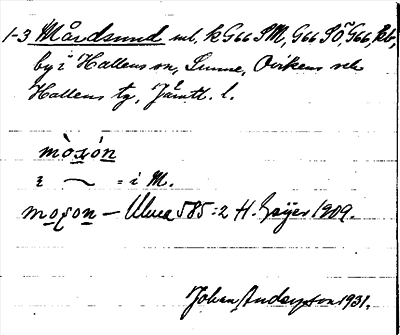 1-3 Mårdsund ml. k G66 SM, G66 SÖ, G66,
by i Hallens sn, Sunne, Ovikens och
Hallens tg, Jämtl. l.
mòsón
i ~ = i M.
moson – Ulvea 585:2 H. Geijer 1909.
Johan Anderson 1931.